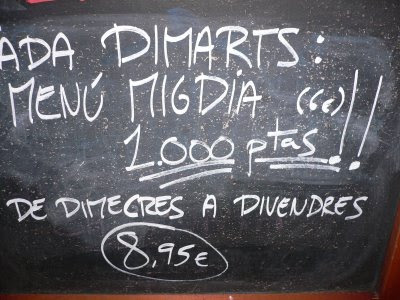 ADA DIMARTS:
MENÚ MIGDIA (6€)
1.000 ptas!!
DE DIMECRES A DIVENDRES
8,95€